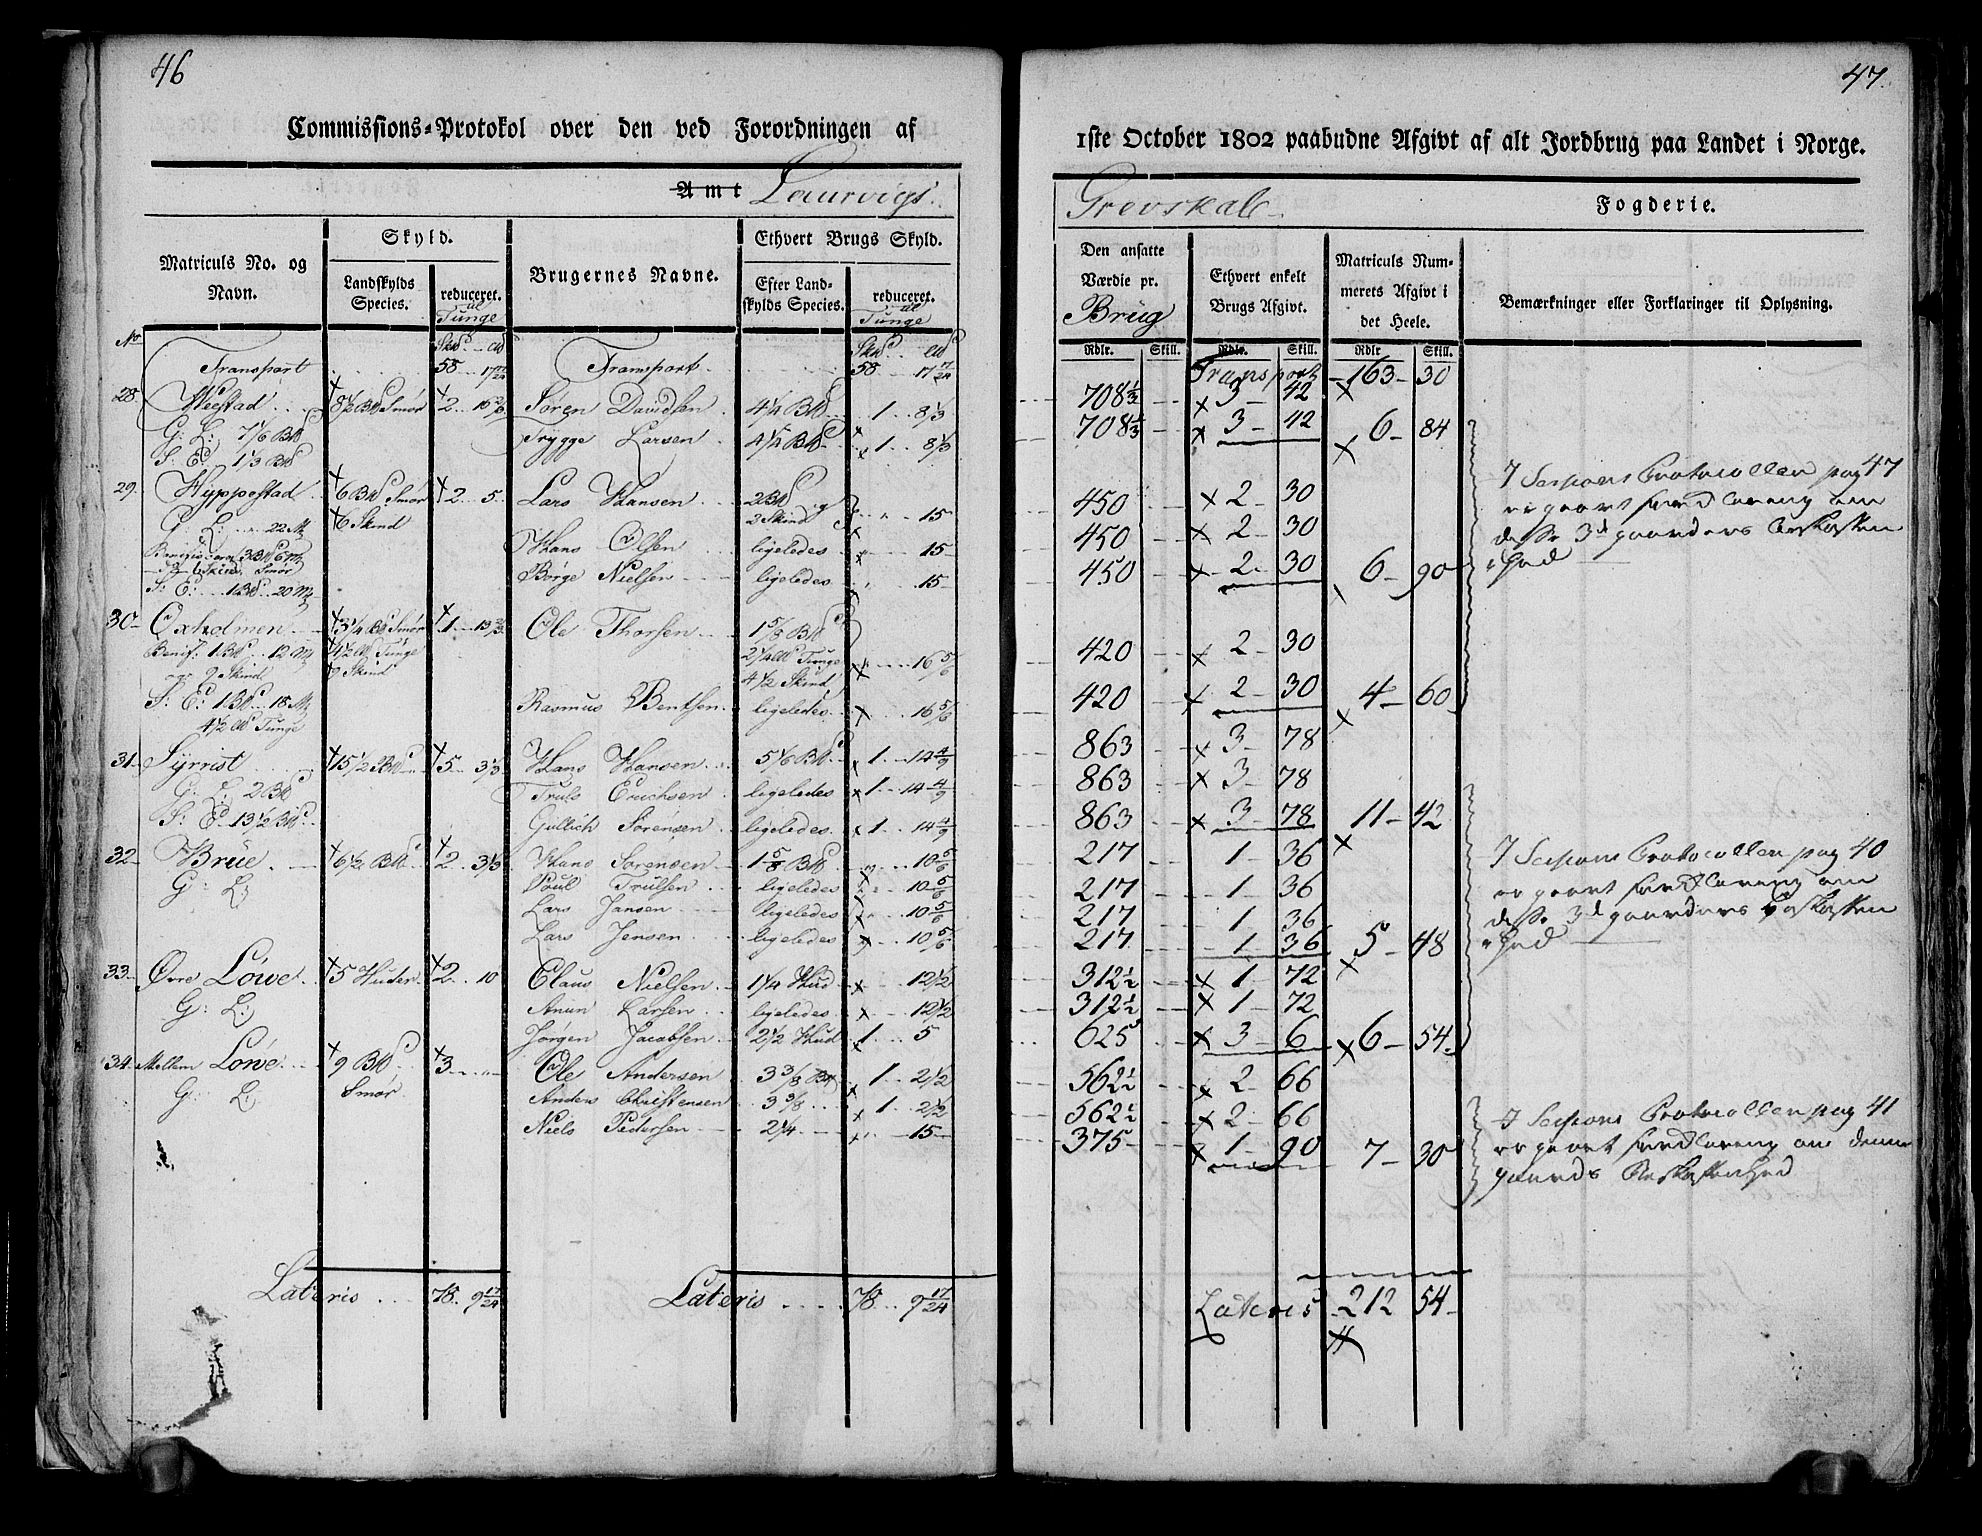 46
Commissions-Protokol over den ved Forordningen af
Amt Laurvigs
Matriculs No. og Navn.
Skyld.
Landskylds Species.
reduceret. til Tunge
Brugernes Navne.
Ethvert Brugs Skyld.
Efter Landskylds Species.
reduceret. til Tunge
No
Transport 58 17 17/24 Transport 58 17 17/24
28 Weestad 8 1/2 Bd Smør 2 16 2/3 Søren Davidsen 4 1/4 Bd 1 8 1/3
G: L: 7 1/6 Bd Trygge Larsen 4 1/4 Bd 1 8 1/3
S: E: 1 1/3 Bd
29 Hyppestad 6 Bd Smør 2 5 Lars Hansen 2 Bd og 15
G: L: 22 M 6 Skind 2 Skind
Hans Olsen ligeledes 15
6 Skind Smør Børge Nielsen ligeledes 15
S: E: 1 Bd 20 M
30 Oxholmen 3 1/4 Bd Smør 1 13 2/3 Ole Thorsen 1 5/8 Bd
Benif: 1 Bd 12 M 4 1/2 Tunge 2 1/4 Tunge 16 5/6
9 Skind 9 Skind 4 1/2 Skind
S: E: 1 Bd 18 M Rasmus Bentsen ligeledes 16 5/6
4 1/2 Tunge
31 Syrrist 15 1/2 Bd 5 3 1/3 Hans Hansen 5 1/6 Bd 1 14 4/9
G: L: 2 Bd Truls Erichsen ligeledes 1 14 4/9
S: E: 13 1/2 Bd Gullich Sørensen ligeledes 1 14 4/9
32 Brue 6 1/2 Bd 2 3 1/3 Hans Sørensen 1 5/8 Bd 10 5/6
G: L: Poul Trulsen ligeledes 10 5/6
Lars Jansen ligeledes 10 5/6
Lars Jensen ligeledes 10 5/6
33 Øvre Løwe 5 Huder 2 10 Claus Nielsen 1 1/4 Hud 12 1/2
G: L: Anun Larsen ligeledes 12 1/2
Jørgen Jacobsen 2 1/2 Hud 1 5
34 Mellem Løwe 9 Bd 3 Ole Andersen 3 3/8 Bd 1 2 1/2
G: L: Smør Anders Christensen 3 3/8 1 2 1/2
Niels Pedersen 2 1/4 15
Lateris 78 9 17/24 Lateris 78 9 17/24
47.
1ste October 1802 paabudne Afgivt af alt Jordbrug paa Landet i Norge.
Grevskab Fogderie.
Den ansatte Værdie pr. Brug
Ethvert enkelt Brugs Afgivt.
Matriculs Nummerets Afgivt i det Heele.
Bemærkninger eller Forklaringer til Oplysning.
Rdlr. Skill. Rdlr. Skill. Rdlr Skill.
Transport 163 30
708 1/3 3 42
708 1/3 3 42 6 84
450 2 30
450 2 30
450 2 30 6 90
I Sessions Protocollen pag 47
er giort forklaring om
disse 3de gaarders beskaffen
hed
420 2 30
420 2 30 4 60
863 3 78
863 3 78
863 3 78 11 42
217 1 36
217 1 36
217 1 36
217 1 36 5 48
I Sessions Protocollen pag 40
er giort forklaring om
disse 3de gaarders beskaffen
hed
312 1/2 1 72
312 1/2 1 72
625 3 6 6 54
562 1/2 2 66
562 1/2 2 66
375 1 90 7 30
I Sessions Protocollen pag 41
er giort forklaring om denne
gaards Beskaffenhed
Lateris 212 54